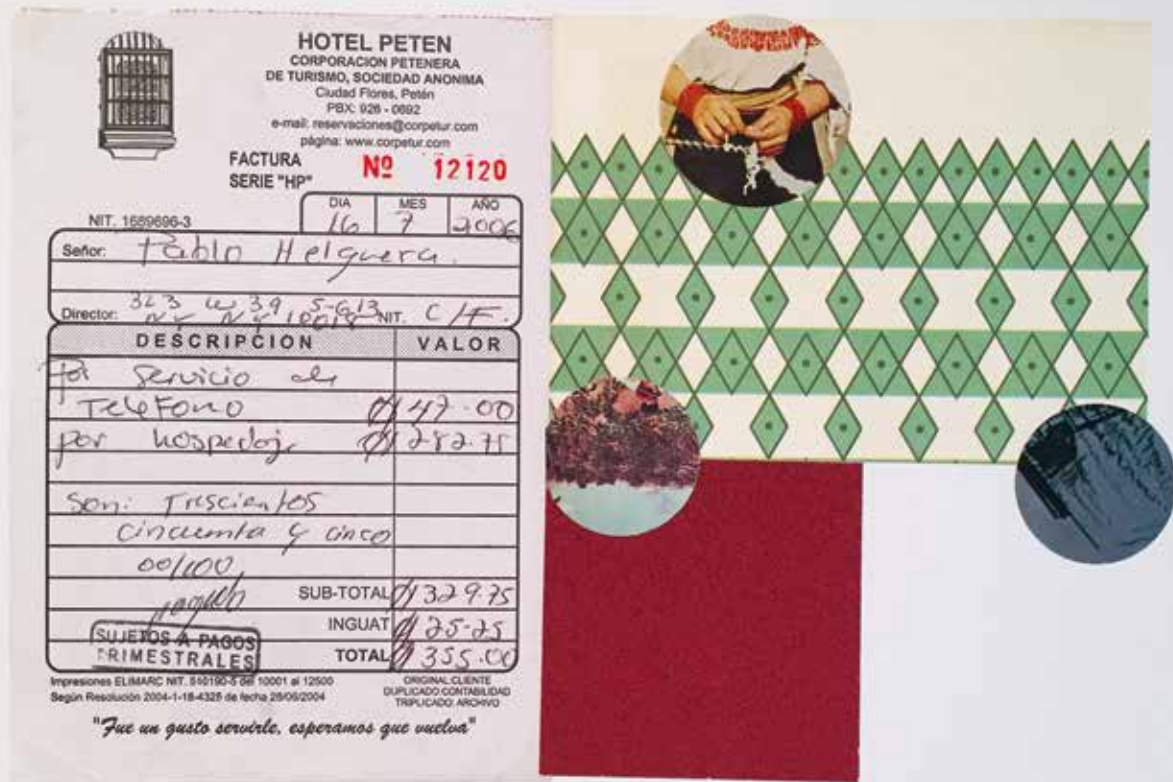 HOTEL PETEN
CORPORACION PETENERA
DE TURISMO, SOCIEDAD ANONIMA
Ciudad Flores, Petén
PBX: 926 - 0692
e-mail: reservaciones@corpetur.com
página: www.corpetur.com
FACTURA
SERIE "HP"
Nº 12120
NIT. 1689696-3
DIA MES AÑO
16 7 2006
Señor: Pablo Helguera.
Director: 323 W 39 NIT. C/F.
NY NY 10018
DESCRIPCION VALOR
Por Servicio de
TeleFono 47.00
por hospedaje 282.75
Son: Trescientos
cincuenta y cinco
00/100
SUB-TOTAL 329.75
INGUAT 25.25
TOTAL 355.00
SUJETOS A PAGOS
TRIMESTRALES
Impresiones ELIMARC NIT. 510190-5 del 10001 al 12500
Según Resolución 2004-1-18-4325 de fecha 28/06/2004
ORIGINAL: CLIENTE
DUPLICADO: CONTABILIDAD
TRIPLICADO: ARCHIVO
"Fue un gusto servirle, esperamos que vuelva"